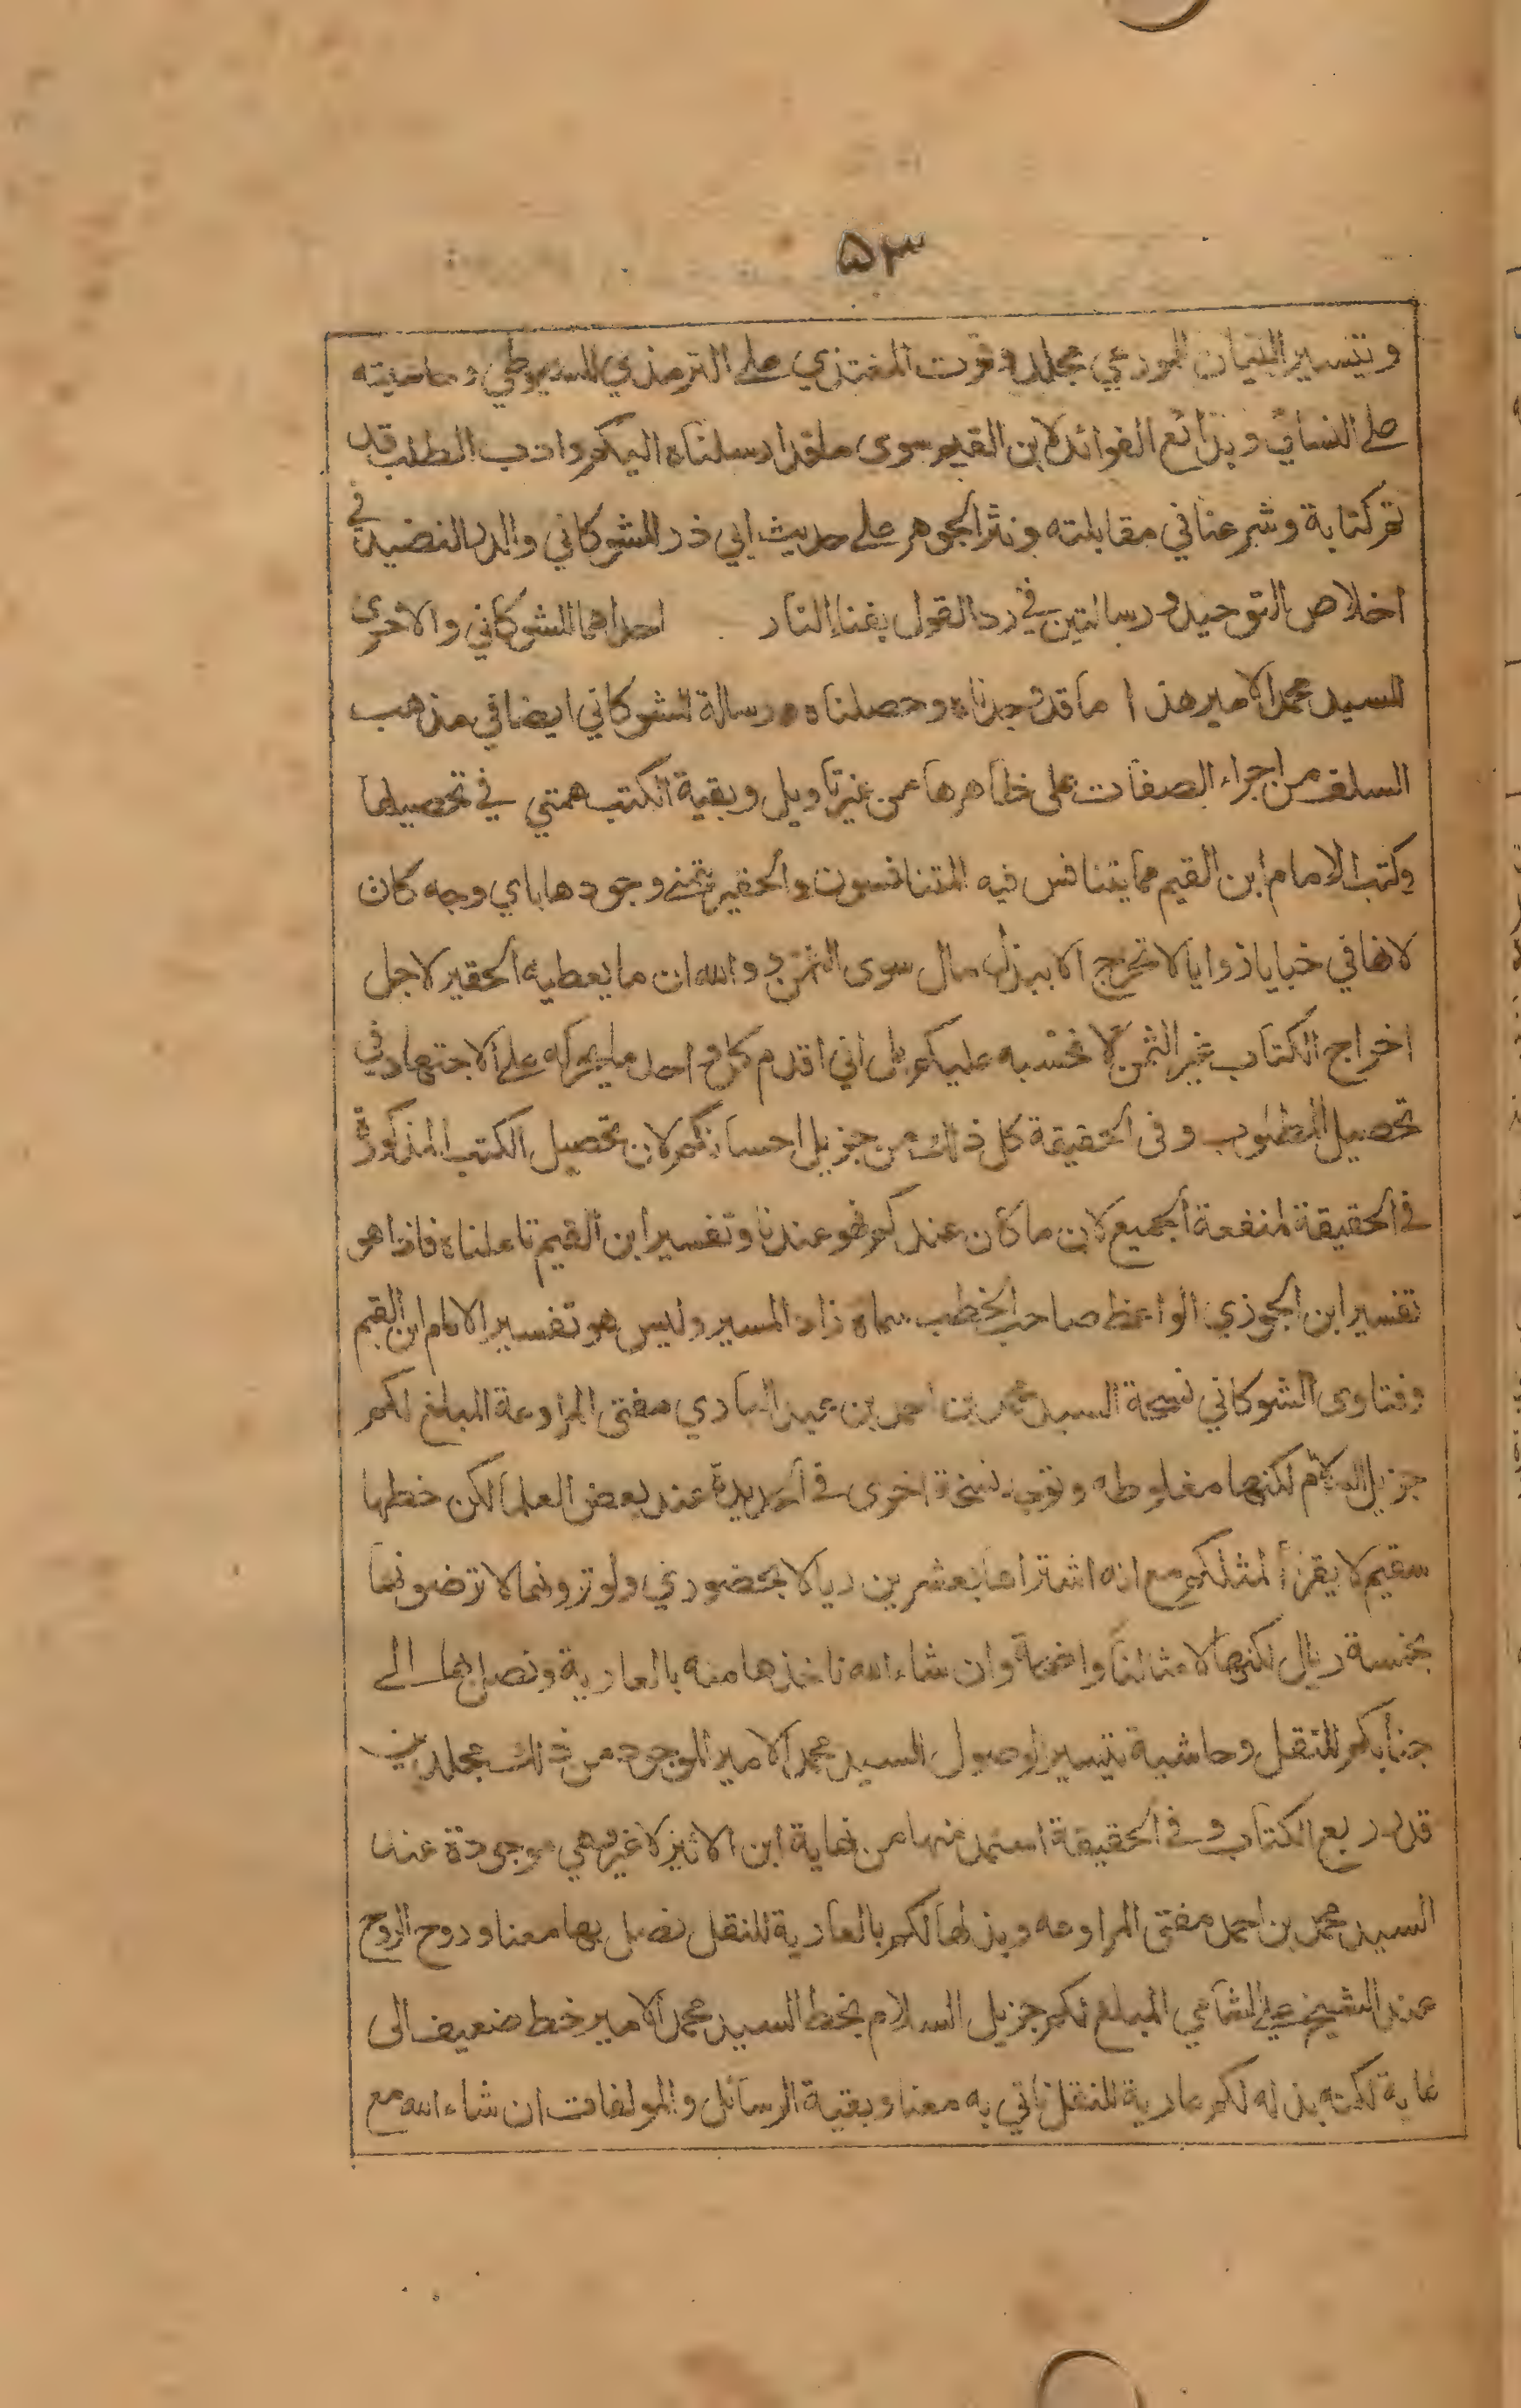 ۵۳
وتيسير البيان للموزعي مجلد وقوت المغتذي على الترمذي للسيوطي وحاشيته
على النسائي وبدائع الفوائد لابن القيم سوى ما قد ارسلناه اليكم وادب الطلب قد
تم كتابة وشرعنا في مقابلته ونثر الجوهر على حديث ابي ذر للشوكاني والدر النضيد في
اخلاص التوحيد ورسالتين في رد القول بفناء النار احداهما للشوكاني والاخرى
للسيد محمد الامير هذا ما قد وجدناه وحصلناه ورسالة للشوكاني ايضا في مذهب
السلف من اجراء الصفات على ظاهرها من غير تاويل وبقية الكتب همتي في تحصيلها
وكتب الامام ابن القيم مما يتنافس فيه المتنافسون والحقير يتمنى وجودها باي وجه كان
لانها في خبايا زوايا لا تخرج الا ببذل مال سوى الثمن والله ان ما يعطيه الحقير لاجل
اخراج الكتاب غير الثمن لا نحسبه عليكم بل اني اقدم كل واحد ما يحركه على الاجتهاد في
تحصيل المطلوب وفي الحقيقة كل ذلك من جزيل احسانكم لان تحصيل الكتب المذكورة
في الحقيقة لمنفعة الجميع لان ما كان عندكم فهو عندنا وتفسير ابن القيم تاملناه فاذا هو
تفسير ابن الجوزي الواعظ صاحب الخطب سماه زاد المسير وليس هو تفسير الامام ابن القيم
وفتاوى الشوكاني نسخة السيد محمد بن احمد بن عبد الباري مفتي المراوعة المبلغ لكم
جزيل السلام لكنها مغلوطه وتوجد نسخة اخرى في الحديدة عند بعض العلما لكن خطها
سقيم لا يقرأ لمثلكم مع انه اشتراها بعشرين ريالا بحضوري ولو ترونها لا ترضونها
بخمسة ريال لكنها لامثالنا واضحة وان شاء الله ناخذها منه بالعارية ونصل بها الى
جنابكم للنقل وحاشية تيسير الوصول للسيد محمد الامير الموجود من ذلك مجلدين
قدر ربع الكتاب وفي الحقيقة استمد منها من نهاية ابن الاثير لا غير وهي موجودة عند
السيد محمد بن احمد مفتي المراوعه وبذلها لكم بالعارية للنقل نصل بها معنا وروح الروح
عند الشيخ علي الشامي المبلغ لكم جزيل السلام بخط السيد محمد الامير خط ضعيف الى
غاية لكنه بذله لكم عارية للنقل ناتي به معنا وبقية الرسائل والمولفات ان شاء الله مع